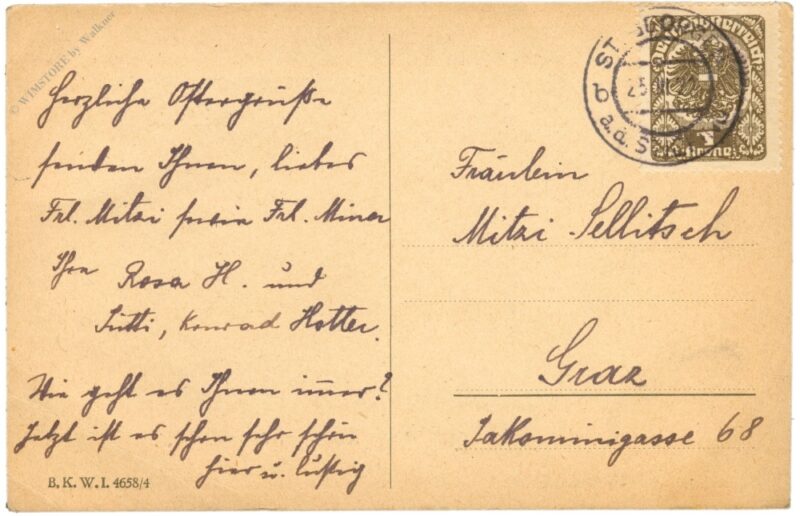 © WIMSTORE by Walkner
Herzliche Ostergrüße
senden Ihnen, liebes
Frl. Mitzi sowie Frl. Minna
Ihre Rosa H. und
Sutti, Konrad Hotter.
Wie geht es Ihnen immer?
Jetzt ist es schon sehr schön
hier u. lustig
B. K. W. I. 4658/4
ST. GEORGEN
a.d. S
b
25
Deutschösterreich
1
Krone
Fräulein
Mitzi Sellitsch
Graz
Jakominigasse 68